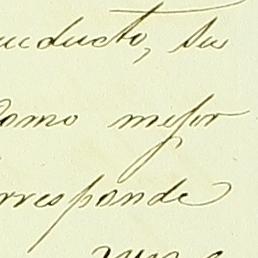 nducto, su
Como mejor
rresponde